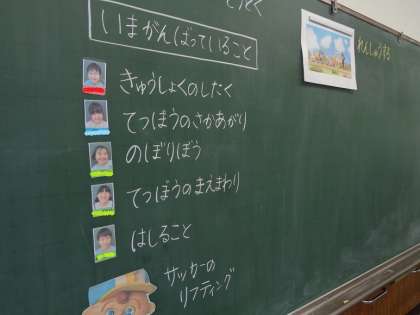 いまがんばっていること
れんしゅうする
きゅうしょくのしたく
てつぼうのさかあがり
のぼりぼう
てつぼうのまえまわり
はしること
サッカーの
リフティング